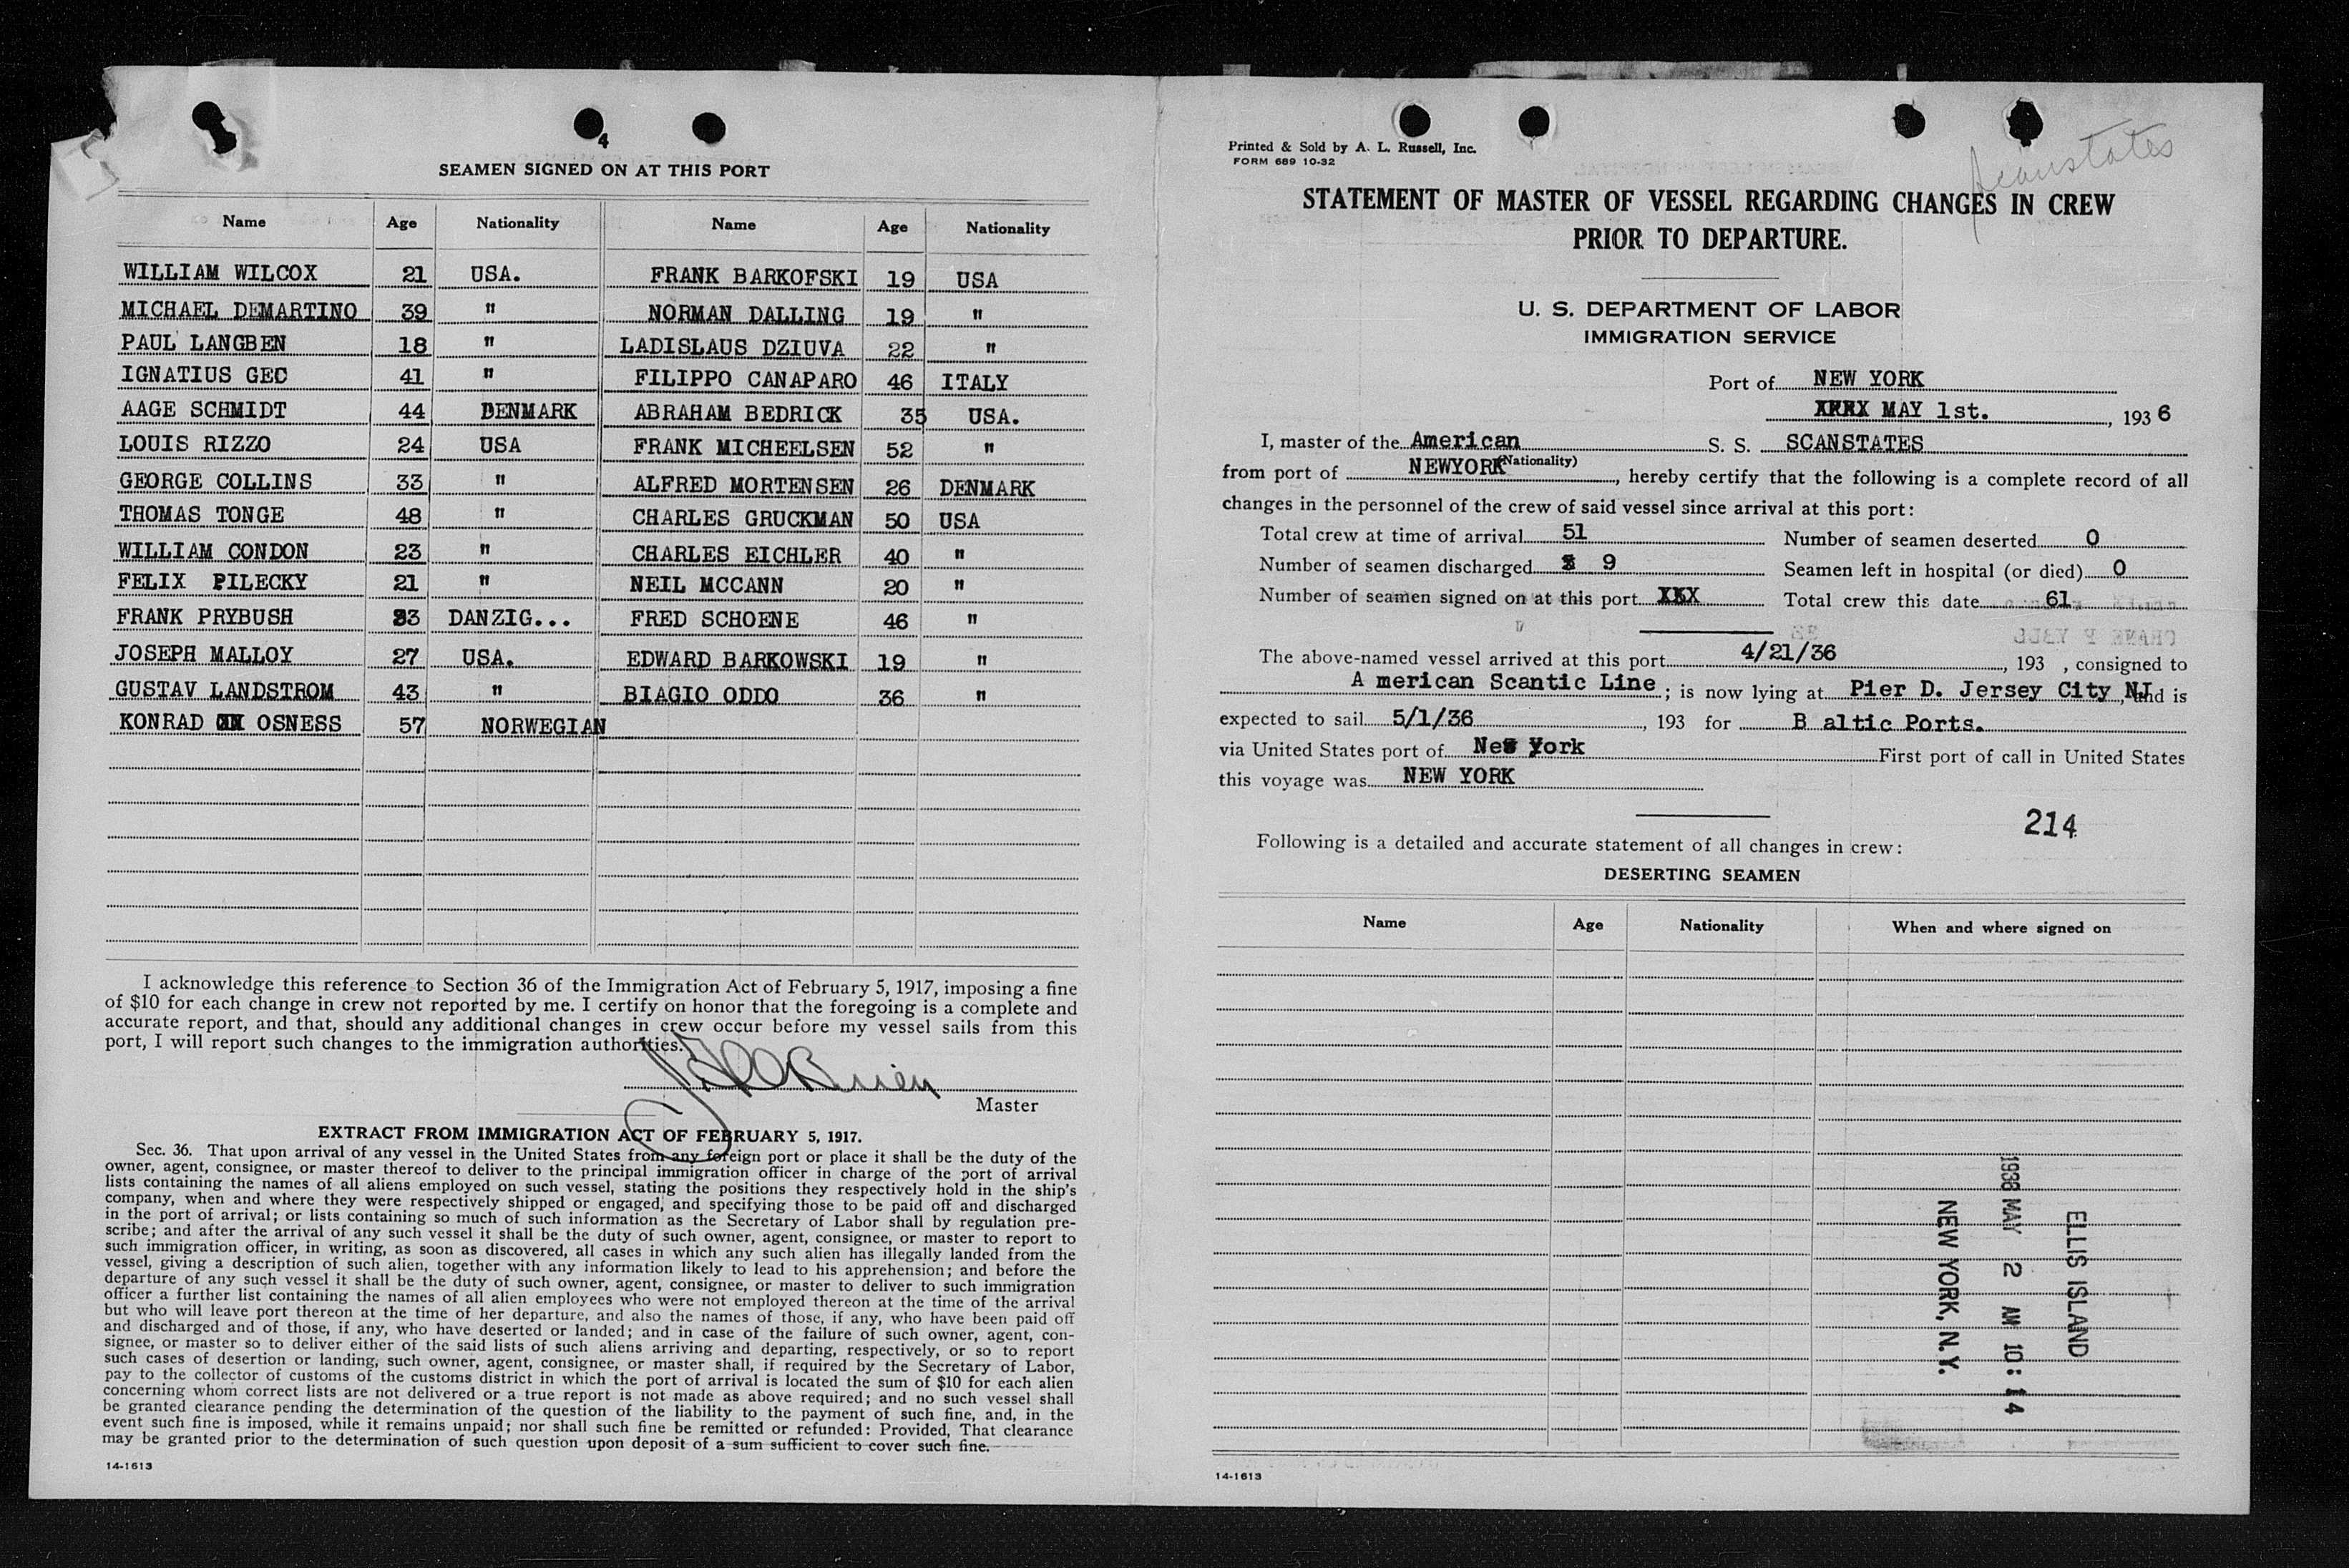 4
SEAMEN SIGNED ON AT THIS PORT
Name Age Nationality Name Age Nationality
WILLIAM WILCOX 21 USA. FRANK BARKOFSKI 19 USA
MICHAEL DEMARTINO 39 " NORMAN DALLING 19 "
PAUL LANGBEN 18 " LADISLAUS DZIUVA 22 "
IGNATIUS GEC 41 " FILIPPO CANAPARO 46 ITALY
AAGE SCHMIDT 44 DENMARK ABRAHAM BEDRICK 35 USA.
LOUIS RIZZO 24 USA FRANK MICHEELSEN 52 "
GEORGE COLLINS 33 " ALFRED MORTENSEN 26 DENMARK
THOMAS TONGE 48 " CHARLES GRUCKMAN 50 USA
WILLIAM CONDON 23 " CHARLES EICHLER 40 "
FELIX PILECKY 21 " NEIL MCCANN 20 "
FRANK PRYBUSH DANZIG... FRED SCHOENE 46 "
JOSEPH MALLOY 27 USA. EDWARD BARKOWSKI 19 "
GUSTAV LANDSTROM 43 " BIAGIO ODDO 36 "
KONRAD OSNESS 57 NORWEGIAN
I acknowledge this reference to Section 36 of the Immigration Act of February 5, 1917, imposing a fine
of $10 for each change in crew not reported by me. I certify on honor that the foregoing is a complete and
accurate report, and that, should any additional changes in crew occur before my vessel sails from this
port, I will report such changes to the immigration authorities.
Master
EXTRACT FROM IMMIGRATION ACT OF FEBRUARY 5, 1917.
Sec. 36. That upon arrival of any vessel in the United States from any foreign port or place it shall be the duty of the
owner, agent, consignee, or master thereof to deliver to the principal immigration officer in charge of the port of arrival
lists containing the names of all aliens employed on such vessel, stating the positions they respectively hold in the ship's
company, when and where they were respectively shipped or engaged, and specifying those to be paid off and discharged
in the port of arrival; or lists containing so much of such information as the Secretary of Labor shall by regulation pre-
scribe; and after the arrival of any such vessel it shall be the duty of such owner, agent, consignee, or master to report to
such immigration officer, in writing, as soon as discovered, all cases in which any such alien has illegally landed from the
vessel, giving a description of such alien, together with any information likely to lead to his apprehension; and before the
departure of any such vessel it shall be the duty of such owner, agent, consignee, or master to deliver to such immigration
officer a further list containing the names of all alien employees who were not employed thereon at the time of the arrival
but who will leave port thereon at the time of her departure, and also the names of those, if any, who have been paid off
and discharged and of those, if any, who have deserted or landed; and in case of the failure of such owner, agent, con-
signee, or master so to deliver either of the said lists of such aliens arriving and departing, respectively, or so to report
such cases of desertion or landing, such owner, agent, consignee, or master shall, if required by the Secretary of Labor,
pay to the collector of customs of the customs district in which the port of arrival is located the sum of $10 for each alien
concerning whom correct lists are not delivered or a true report is not made as above required; and no such vessel shall
be granted clearance pending the determination of the question of the liability to the payment of such fine, and, in the
event such fine is imposed, while it remains unpaid; nor shall such fine be remitted or refunded: Provided, That clearance
may be granted prior to the determination of such question upon deposit of a sum sufficient to cover such fine.
14-1613
Printed & Sold by A. L. Russell, Inc.
FORM 689 10-32
Scanstates
STATEMENT OF MASTER OF VESSEL REGARDING CHANGES IN CREW
PRIOR TO DEPARTURE.
U. S. DEPARTMENT OF LABOR
IMMIGRATION SERVICE
Port of NEW YORK
MAY 1st. , 1936
I, master of the American S. S. SCANSTATES
(Nationality)
from port of NEWYORK , hereby certify that the following is a complete record of all
changes in the personnel of the crew of said vessel since arrival at this port:
Total crew at time of arrival 51 Number of seamen deserted 0
Number of seamen discharged 9 Seamen left in hospital (or died) 0
Number of seamen signed on at this port XXX Total crew this date 61
The above-named vessel arrived at this port 4/21/36 , 193 , consigned to
A merican Scantic Line ; is now lying at Pier D. Jersey City NJ , and is
expected to sail 5/1/36 , 193 for B altic Ports.
via United States port of New York First port of call in United States
this voyage was NEW YORK
214
Following is a detailed and accurate statement of all changes in crew:
DESERTING SEAMEN
Name Age Nationality When and where signed on
ELLIS ISLAND
1936 MAY 2 AM 10:14
NEW YORK, N.Y.
14-1613